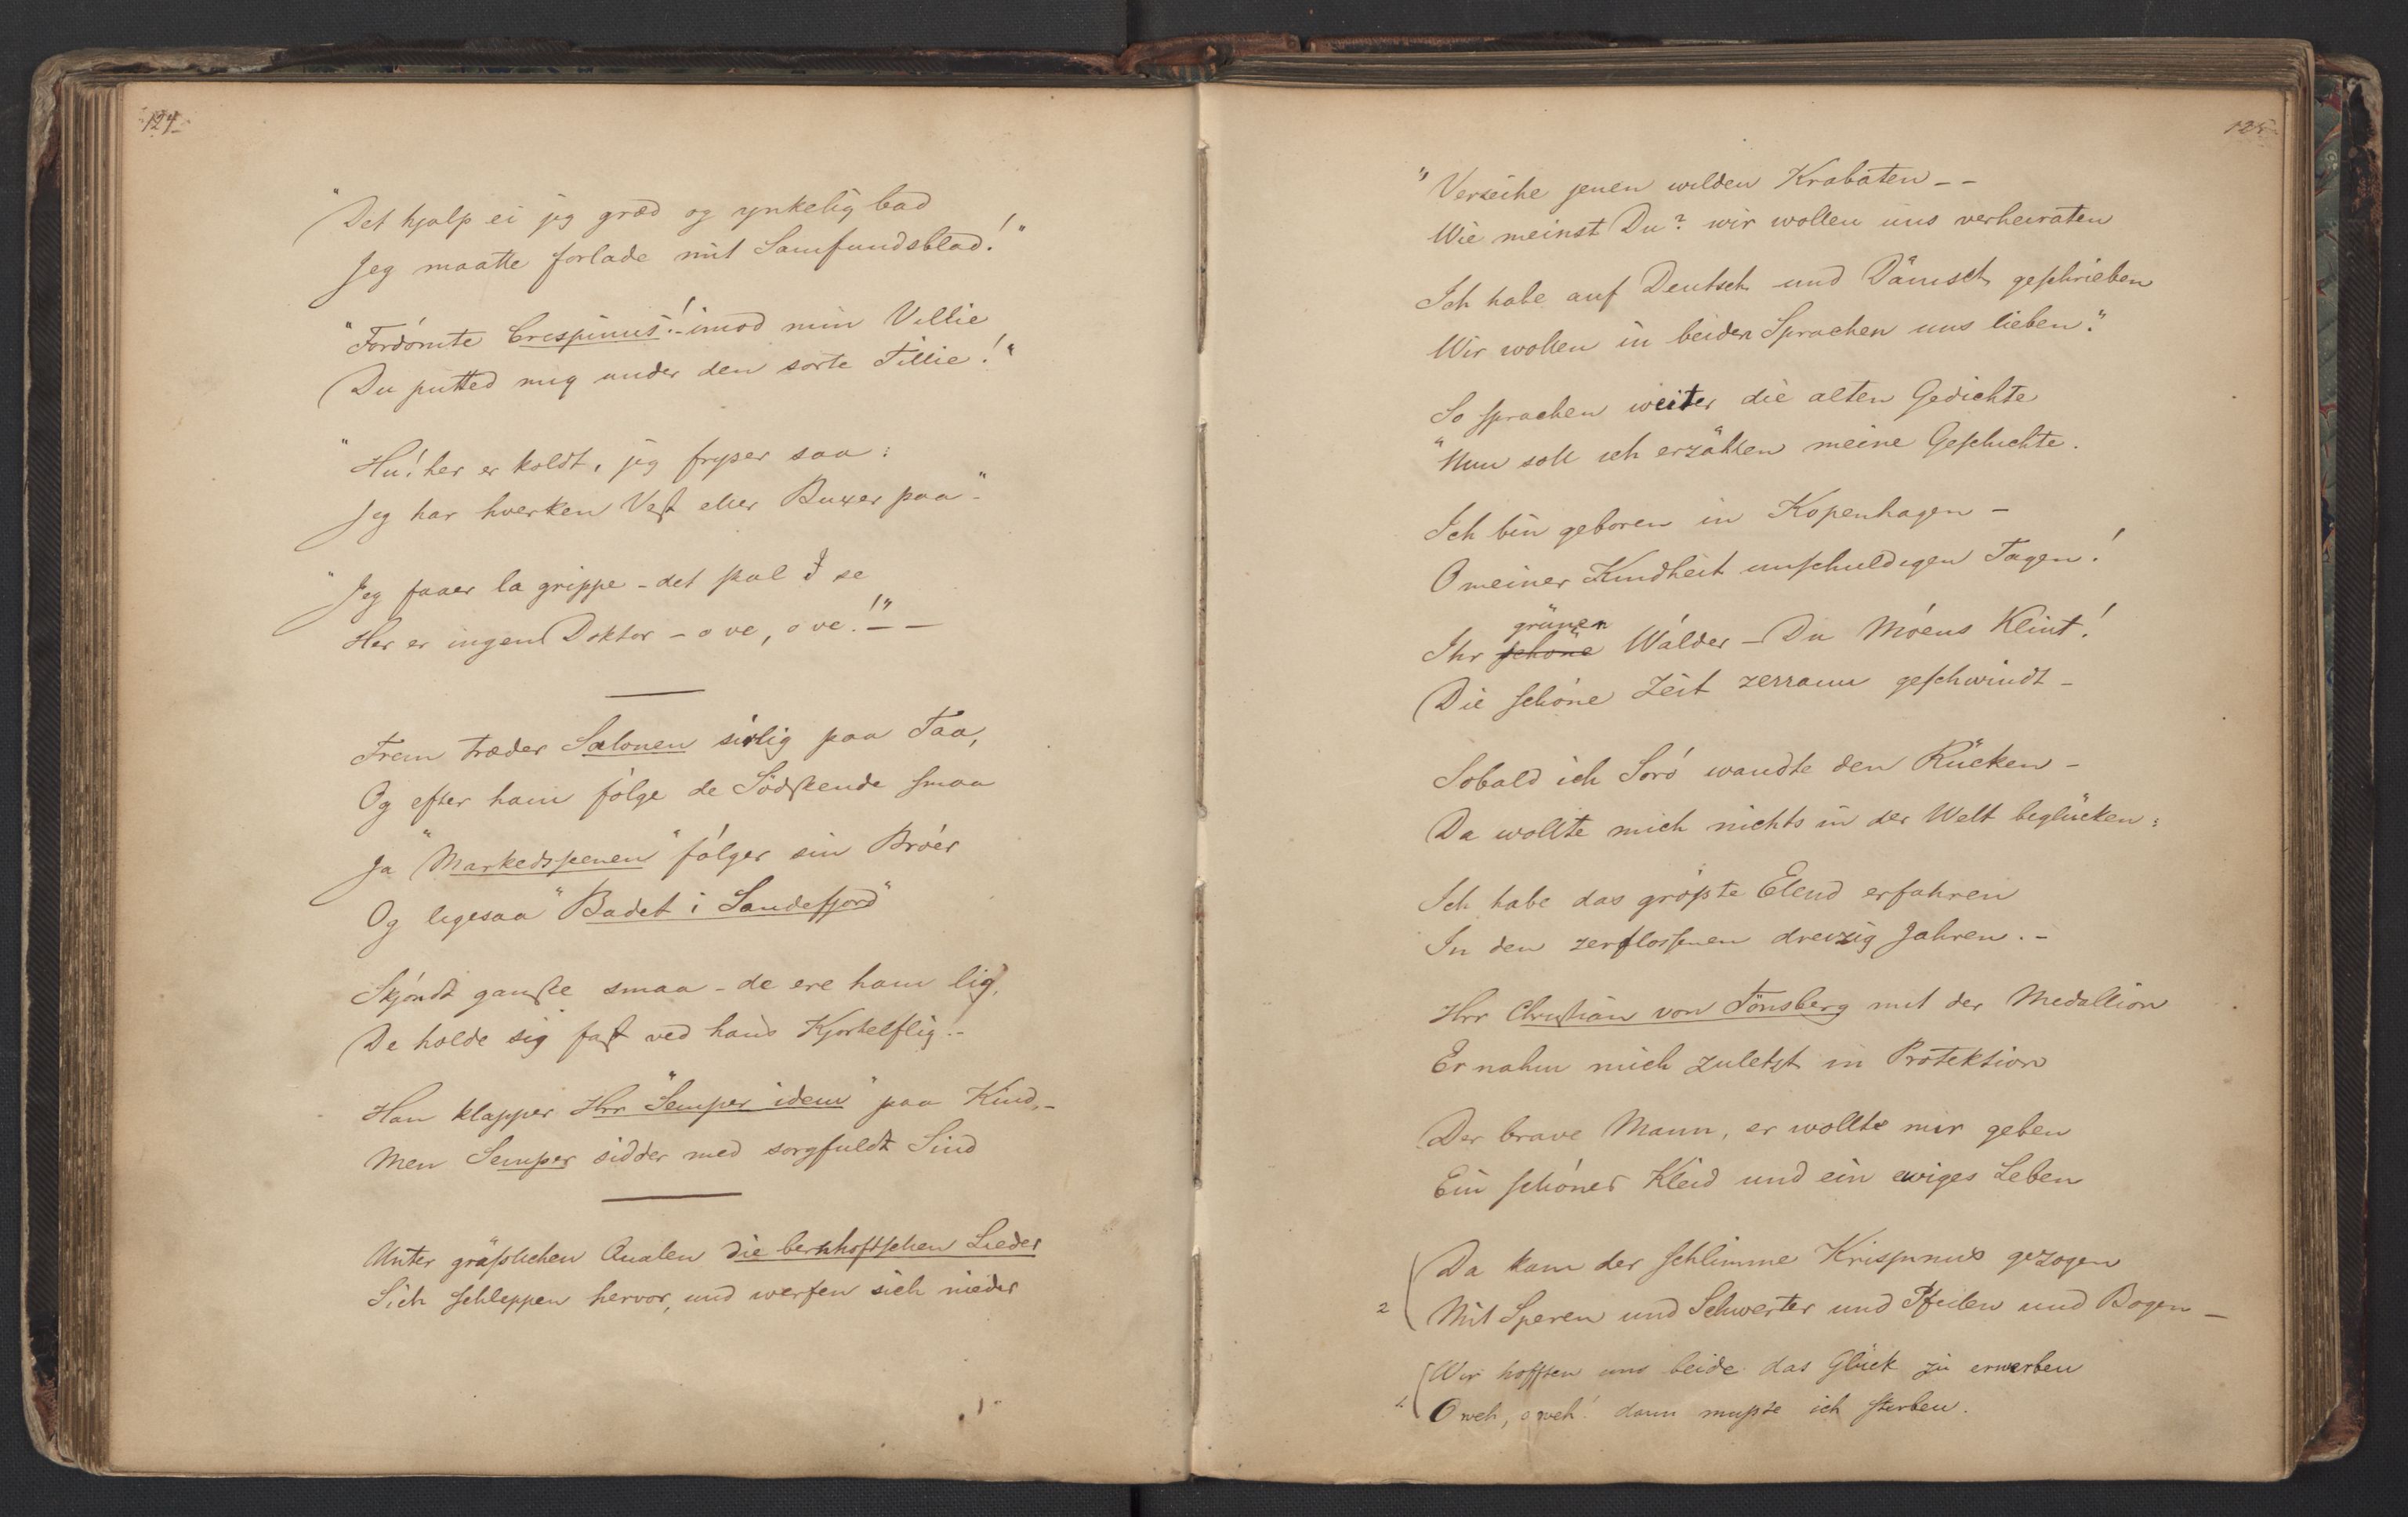 124.
"Det hjalp ei jeg græd og ynkelig bad
Jeg maatte forlade mit Samfundsblad!"
"Fordömte Crespinus!-imod min Villie
Du putted mig under den sorte Tillie!"
"Hu! her er koldt, jeg fryser saa:
Jeg har hverken Vest eller Buxer paa"-
"Jeg faaer la grippe - det skal I se
Her er ingen Doktor - o ve, o ve!"--
Frem træder Salonen sirlig paa Taa,
Og efter ham fölge de Södskende smaa
Ja "Markedsscenen" fölger sin Bröer
Og ligesaa "Badet i Sandefjord"
Skjöndt ganske smaa - de ere ham lig,
De holde sig fast ved hans Kjortelflig!-
Han klapper Hrr "Semper idem" paa Kind,-
Men Semper sidder med sorgfuldt Sind
Unter gräßlichen Qualen die bernhoftschen Lieder
Sich schleppen hervor, und werfen sich nieder
125
"Verzeihe jenen wilden Krabaten--
Wie meinst Du? wir wollen uns verheiraten
Ich habe auf Deutsch und Dänisch geschrieben
Wir wollen in beiden Sprachen uns lieben."
So sprachen weiter die alten Gedichte
"Nun soll ich erzählen meine Geschichte.
Ich bin geboren in Kopenhagen -
O meiner Kindheit unschuldigen Tagen!
grünen
Ihr schöne Wälder - Du Möens Klint!
Die schöne Zeit zerrann geschwindt -
Sobald ich Sorö wandte den Rücken -
Da wollte mich nichts in der Welt beglücken:
Ich habe das größte Elend erfahren
In den zerflossenen dreizig Jahren.-
Hrr Christian von Tönsberg mit der Medallion
Er nahm mich zuletzt in Protektion
Der brave Mann, er wollte mir geben
Ein schönes Kleid und ein ewiges Leben
Da kam der schlimme Krispinus gezogen
2 Mit Speren und Schwerter und Pfeilen und Bogen -
Wir hofften uns beide das Glück zu erwerben
1. O weh, o weh! dann mußte ich sterben.